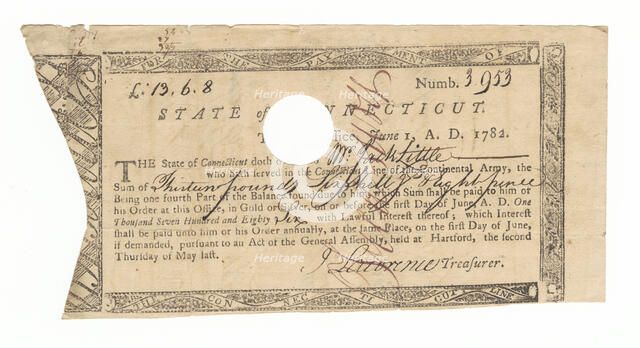 FOR THE PAYMENT OF
£: 13. 6. 8 Numb. 3953
STATE of CONNECTICUT.
Office, June 1, A. D. 1782.
THE State of Connecticut doth owe Mr. Little
who hath served in the Connecticut Line of the Continental Army, the
Sum of Thirteen pounds Six shill & Eight pence
Being one fourth Part of the Balance found due to him, which Sum shall be paid to him or
his Order at this Office, in Gold or Silver, on or before the first Day of June, A. D. One
Thousand Seven Hundred and Eighty Six with Lawful Interest thereof; which Interest
shall be paid unto him or his Order annually, at the same Place, on the first Day of June,
if demanded, pursuant to an Act of the General Assembly, held at Hartford, the second
Thursday of May last.
J Lawrence Treasurer.
CON NEC TI CUT LINE
Heritage